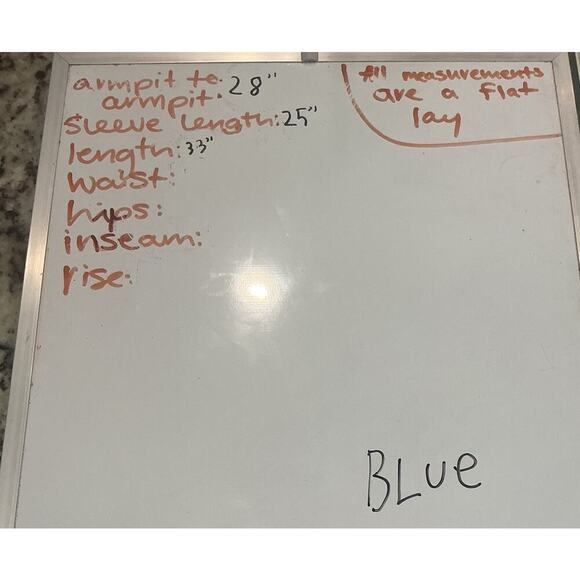 armpit to
armpit: 28"
sleeve length: 25"
length: 33"
waist:
hips:
inseam:
rise:
All measurements
are a flat
lay
BLUE